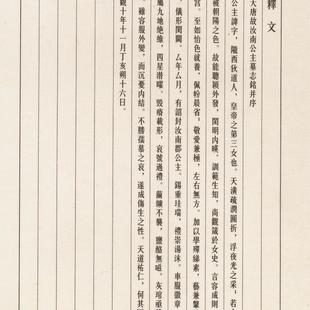 釋文
大唐故汝南公主墓志銘并序
公主諱字，隴西狄道人，皇帝之第三女也。天潢疏潤圓折，浮夜光之采；若
被朝陽之色。故能聰穎外發，閑明内暎。訓範生知，尚觀箴於女史。言容成則
宮。至如怡色就養，佩帉晨省，敬愛兼極，左右無方。加以學殫綈素，藝兼鞶
儀形閨閫。厶年厶月，有詔封汝南郡公主。錫重珪瑞，禮崇湯沐。車服徽章
屬九地絶維，四星潛曜。毁瘠載形，哀號過禮。繭纊不襲，鹽酪無嗞。灰琯亟
雖容服外變，而沉憂内結。不勝孺慕之哀，遂成傷生之性。天道祐仁，何其
觀十年十一月丁亥朔十六日。